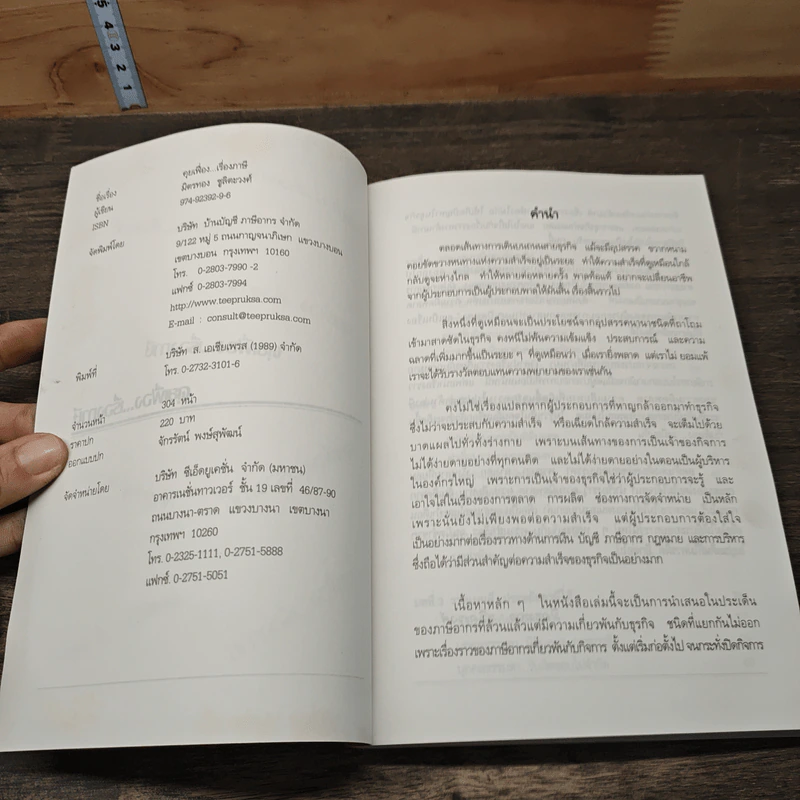 5
4
3
2
1
ชื่อเรื่อง คุยเฟื่อง...เรื่องภาษี
ผู้เขียน มิตรทอง ชูลิตะวงศ์
ISBN 974-92392-9-6
จัดพิมพ์โดย บริษัท บ้านบัญชี ภาษีอากร จำกัด
9/122 หมู่ 5 ถนนกาญจนาภิเษก แขวงบางบอน
เขตบางบอน กรุงเทพฯ 10160
โทร. 0-2803-7990 -2
แฟกซ์ 0-2803-7994
http://www.teepruksa.com
E-mail : consult@teepruksa.com
พิมพ์ที่ บริษัท ส. เอเชียเพรส (1989) จำกัด
โทร. 0-2732-3101-6
จำนวนหน้า 304 หน้า
ราคาปก 220 บาท
ออกแบบปก จักรรัตน์ พงษ์สุพัฒน์
จัดจำหน่ายโดย บริษัท ซีเอ็ดยูเคชั่น จำกัด (มหาชน)
อาคารเนชั่นทาวเวอร์ ชั้น 19 เลขที่ 46/87-90
ถนนบางนา-ตราด แขวงบางนา เขตบางนา
กรุงเทพฯ 10260
โทร. 0-2325-1111, 0-2751-5888
แฟกซ์. 0-2751-5051
คำนำ
ตลอดเส้นทางการเดินบนถนนสายธุรกิจ แม้จะมีอุปสรรค ขวากหนาม
คอยขัดขวางหนทางแห่งความสำเร็จอยู่เป็นระยะ ทำให้ความสำเร็จที่ดูเหมือนใกล้
กลับดูจะห่างไกล ทำให้หลายต่อหลายครั้ง พาลท้อแท้ อยากจะเปลี่ยนอาชีพ
จากผู้ประกอบการเป็นผู้ประกอบพาลให้มันสิ้น เรื่องสิ้นราวไป
สิ่งหนึ่งที่ดูเหมือนจะเป็นประโยชน์จากอุปสรรคนานาชนิดที่ถาโถม
เข้ามาสาดซัดในธุรกิจ คงหนีไม่พ้นความเข้มแข็ง ประสบการณ์ และความ
ฉลาดที่เพิ่มมากขึ้นเป็นระยะ ๆ ที่ดูเหมือนว่า เมื่อเรายิ่งพลาด แต่เราไม่ ยอมแพ้
เราจะได้รับรางวัลตอบแทนความพยายามของเราเช่นกัน
คงไม่ใช่เรื่องแปลกหากผู้ประกอบการที่หาญกล้าออกมาทำธุรกิจ
ซึ่งไม่ว่าจะประสบกับความสำเร็จ หรือเฉียดใกล้ความสำเร็จ จะเต็มไปด้วย
บาดแผลไปทั่วทั้งร่างกาย เพราะบนเส้นทางของการเป็นเจ้าของกิจการ
ไม่ได้ง่ายดายอย่างที่ทุกคนคิด และไม่ได้ง่ายดายอย่างในตอนเป็นผู้บริหาร
ในองค์กรใหญ่ เพราะการเป็นเจ้าของธุรกิจใช่ว่าผู้ประกอบการจะรู้ และ
เอาใจใส่ในเรื่องของการตลาด การผลิต ช่องทางการจัดจำหน่าย เป็นหลัก
เพราะนั่นยังไม่เพียงพอต่อความสำเร็จ แต่ผู้ประกอบการต้องใส่ใจ
เป็นอย่างมากต่อเรื่องราวทางด้านการเงิน บัญชี ภาษีอากร กฎหมาย และการบริหาร
ซึ่งถือได้ว่ามีส่วนสำคัญต่อความสำเร็จของธุรกิจเป็นอย่างมาก
เนื้อหาหลัก ๆ ในหนังสือเล่มนี้จะเป็นการนำเสนอในประเด็น
ของภาษีอากรที่ล้วนแล้วแต่มีความเกี่ยวพันกับธุรกิจ ชนิดที่แยกกันไม่ออก
เพราะเรื่องราวของภาษีอากรเกี่ยวพันกับกิจการ ตั้งแต่เริ่มก่อตั้งไป จนกระทั่งปิดกิจการ